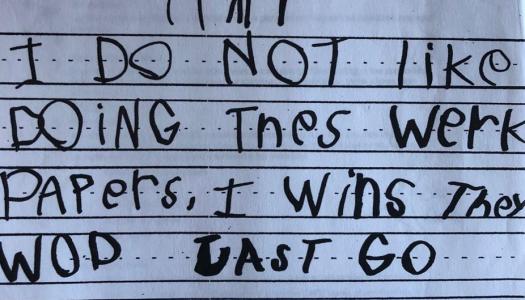 I DO NOT like
DOiNG Thes Werk
PAPers, I Wihs They
WOD JAST GO